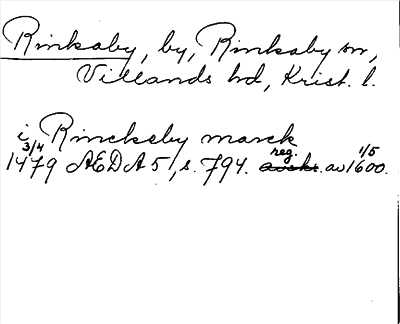 Rinkaby, by, Rinkaby sn,
Villands hd, Krist. l.
i Rinckeby marck
3/4 reg. 1/5
1479 ÆDA 5, s. 794. avskr. av 1600.